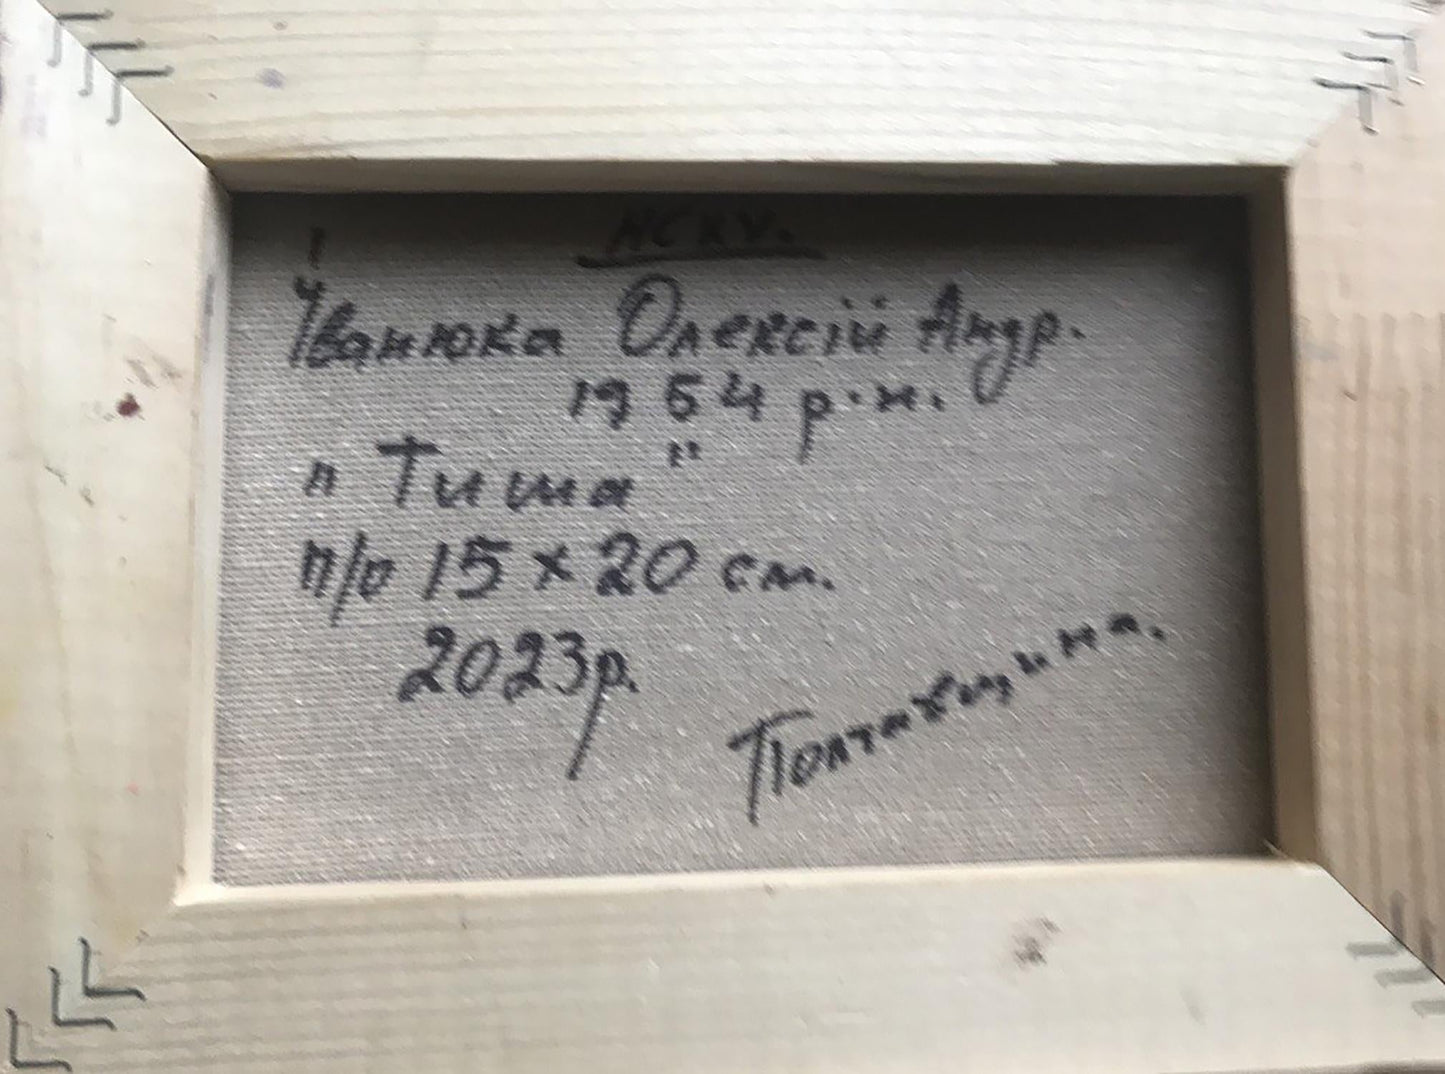 НСХУ.
Іванюка Олексій Андр.
1954 р.н.
"Тиша"
п/о 15 х 20 см.
2023р.
Полтавщина.